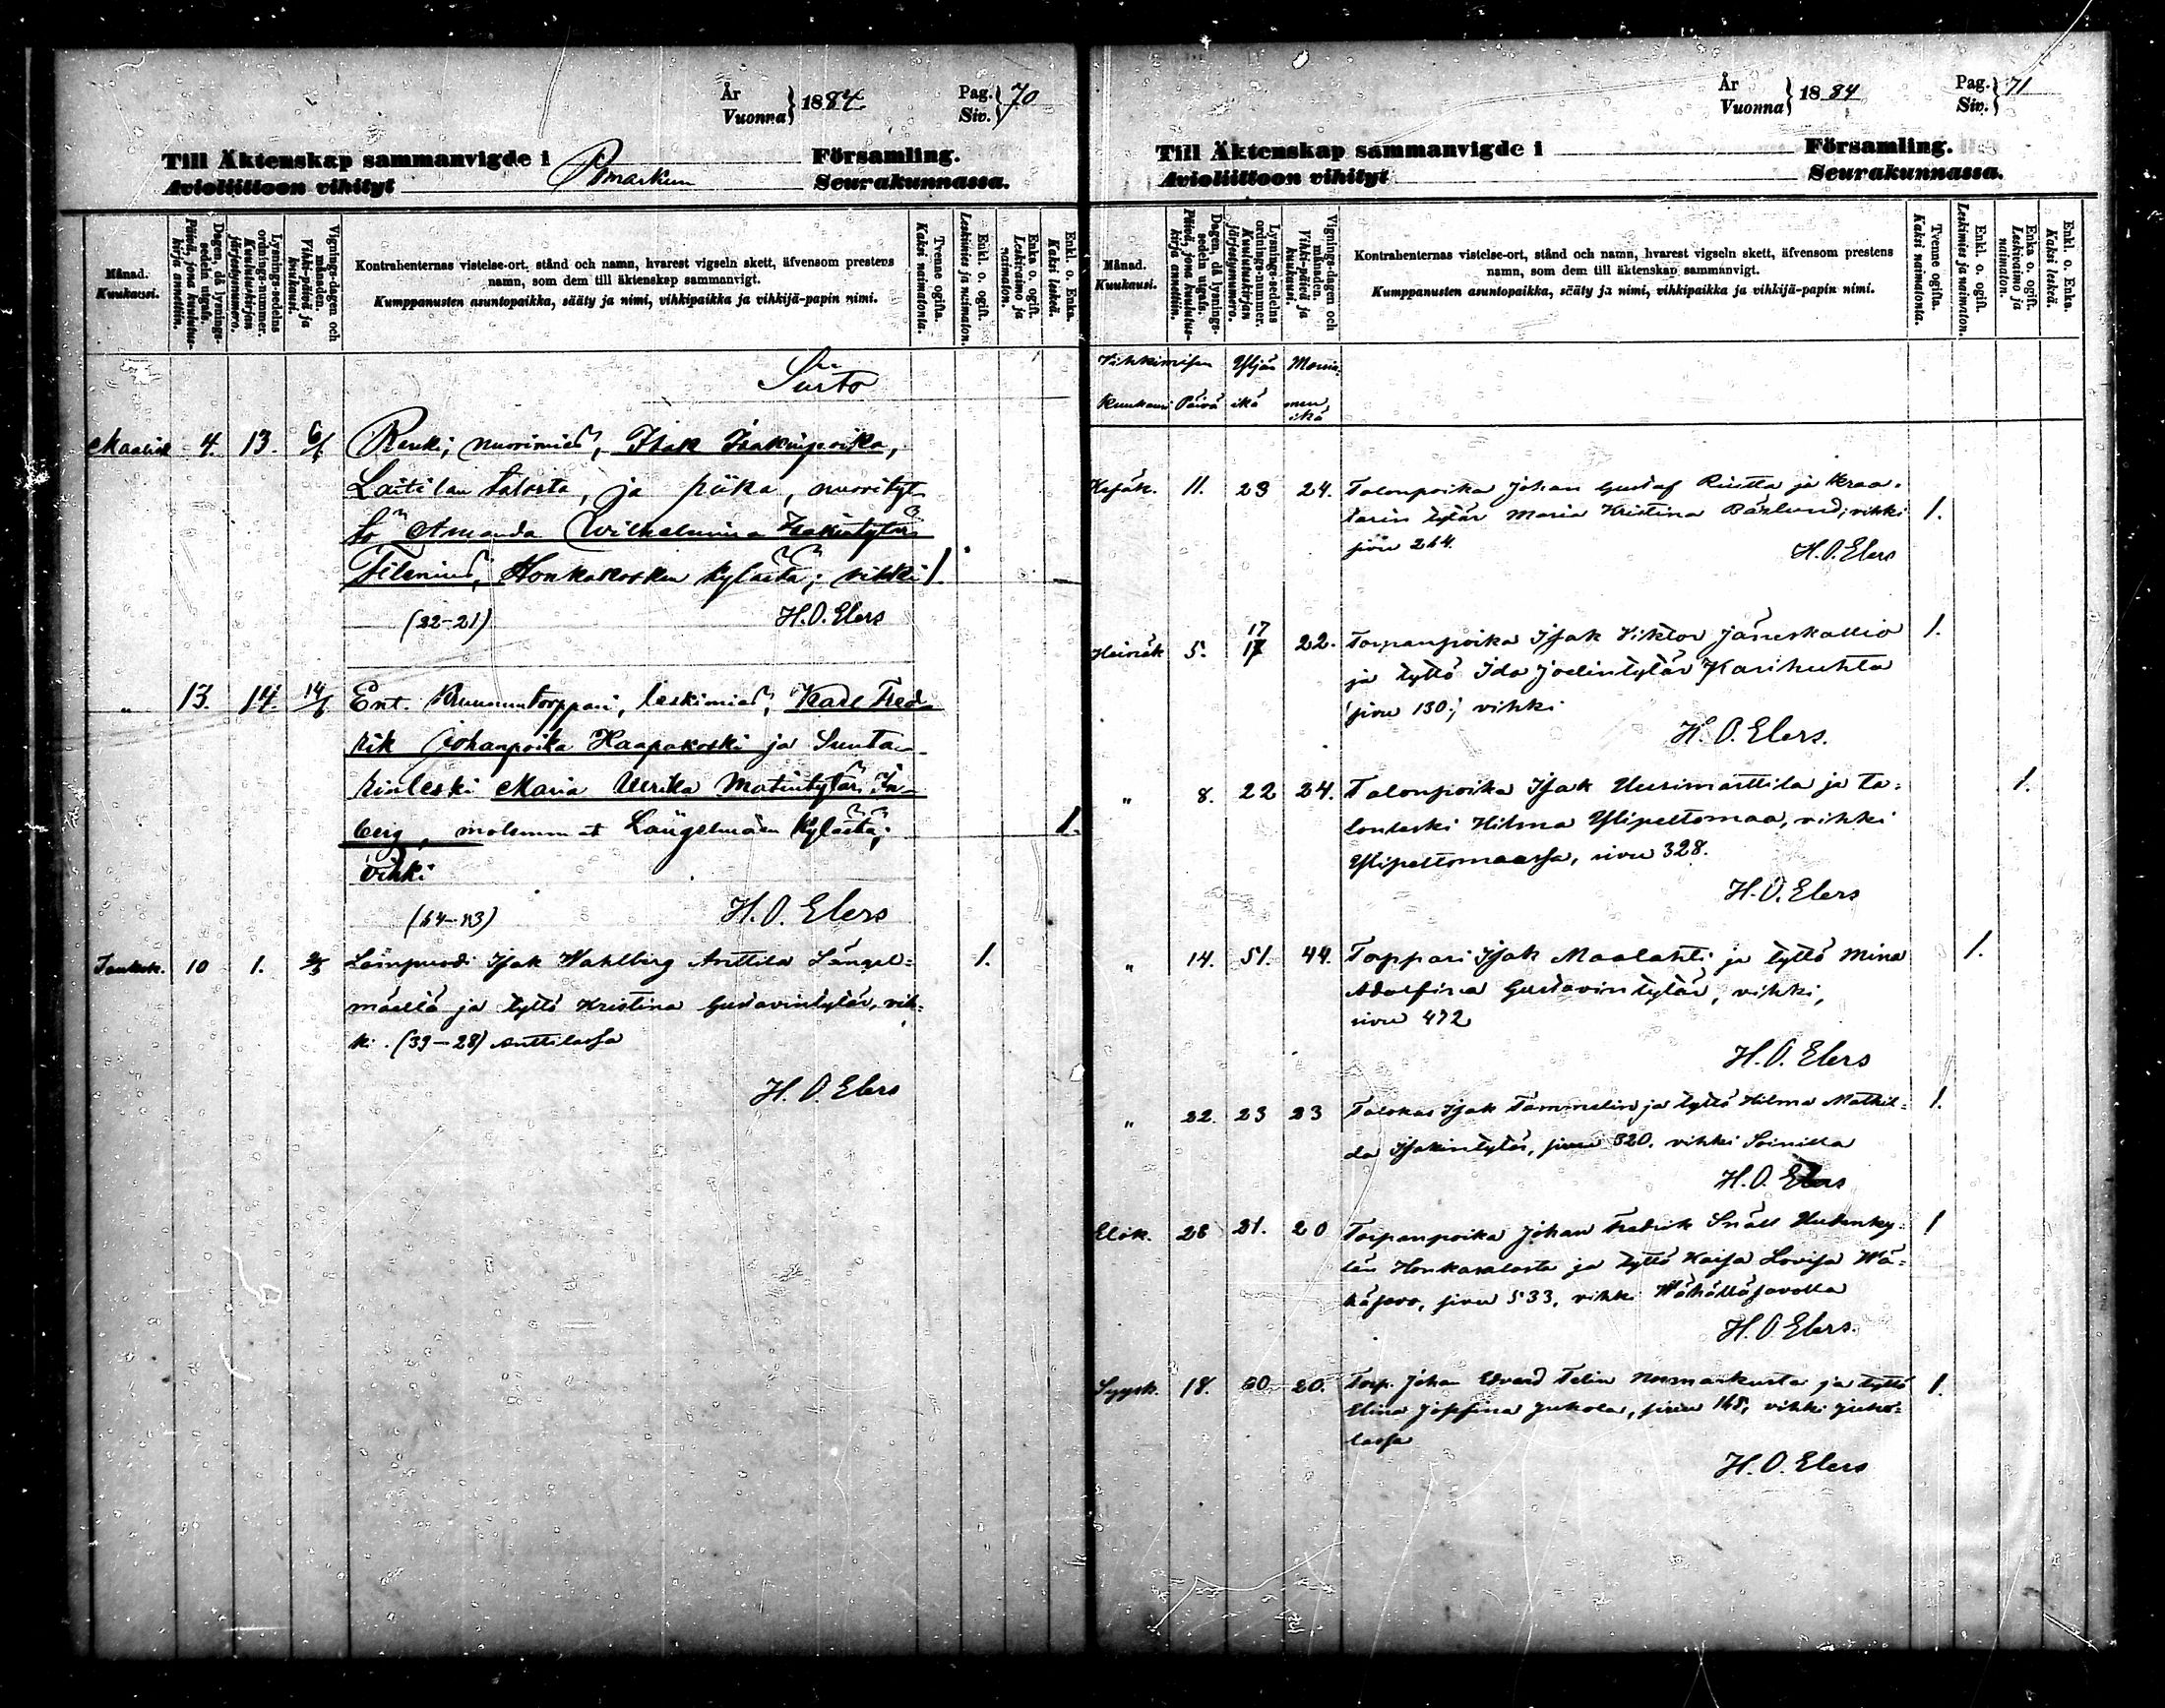 År
Vuonna } 1884.
Pag.
Siv. } 70
Till Äktenskap sammanvigde i Påmarkun Församling.
Avioliittoon vihityt Seurakunnassa.
Månad.
Kuukausi.
Dagen, då lysnings-
sedeln utgafs.
Päivä, jona kuulutus-
kirja annettiin.
Lysnings-sedelns
ordnings-nummer.
Kuulutuskirjan
järjestysnumero.
Vignings-dagen och
månaden.
Vihki-päivä ja
kuukausi.
Kontrahenternas vistelse-ort, stånd och namn, hvarest vigseln skett, äfvensom prestens
namn, som dem till äktenskap sammanvigt.
Kumppanusten asuntopaikka, sääty ja nimi, vihkipaikka ja vihkijä-papin nimi.
Tvenne ogifta.
Kaksi naimatonta.
Enkl. o. ogift.
Leskimies ja naimaton.
Enka o. ogift.
Leskivaimo ja
naimaton.
Enkl. o. Enka.
Kaksi leskeä.
Siirto
Maalisk 4. 13. Renki, nuorimies, Isak Isakinpoika,
Laitilan talosta, ja piika, nuorityt-
tö Amanda Wilhelmina Isakintytär
Filenius, Honkakosken kylästä; vihki 1.
(22-21) H. O. Elers
" 13. 14. Ent. Kruununtorppari, leskimies, Karl Fred-
rik Johanpoika Haapakoski ja Suuta-
rinleski Maria Ulrika Matintytär In-
berg, molemmat Längelmäen kylästä; 1.
vihki
H. O. Elers
10 1. Isak Wahlberg Anttila Längel-
mäellä ja tyttö Kristina Gustavintytär, vih- 1.
ki. (39-28) Anttilassa
H. O. Elers
År
Vuonna } 1884
Pag.
Siv. } 71
Till Äktenskap sammanvigde i Församling.
Avioliittoon vihityt Seurakunnassa.
Månad.
Kuukausi.
Dagen, då lysnings-
sedeln utgafs.
Päivä, jona kuulutus-
kirja annettiin.
Lysnings-sedelns
ordnings-nummer.
Kuulutuskirjan
järjestysnumero.
Vignings-dagen och
månaden.
Vihki-päivä ja
kuukausi.
Kontrahenternas vistelse-ort, stånd och namn, hvarest vigseln skett, äfvensom prestens
namn, som dem till äktenskap sammanvigt.
Kumppanusten asuntopaikka, sääty ja nimi, vihkipaikka ja vihkijä-papin nimi.
Tvenne ogifta.
Kaksi naimatonta.
Enkl. o. ogift.
Leskimies ja naimaton.
Enka o. ogift.
Leskivaimo ja
naimaton.
Enkl. o. Enka.
Kaksi leskeä.
Vihkimisen Yljän Morsia-
Kuukausi Päivä ikä men
ikä
Kesäk. 11. 23 24. Talonpoika Johan Gustaf Riutta ja Kraa-
tarin tytär Maria Kristina Bäxlund; vihki 1.
sivu 264. H. O. Elers
17
Heinäk 5. 17 22. Torpanpoika Isak Viktor Jäneskallio 1.
ja tyttö Ida Joelintytär Karihuhta
sivu 130; vihki
H. O. Elers.
" 8. 22 24. Talonpoika Isak Uusimarttila ja ta- 1.
lonleski Hilma Ylipeltomaa, vihki
Ylipeltomaassa, sivu 328.
H. O. Elers
" 14. 51. 44. Torppari Isak Maalahti ja tyttö Mina 1.
Adolfina Gustavintytär, vihki,
sivu 472
H. O. Elers
" 22. 23 23 Isak Tammelin ja tyttö Hilma Mathil- 1.
da Isakintytär, sivu 320. vihki Soinilla
H. O. Elers
Elok. 28 21. 20 Torpanpoika Johan Fredrik Snäll Uudenky- 1
län Honkasalosta ja tyttö Kaisa Lovisa Wä-
häsavo, sivu 533, vihki Wähälläsavolla
H. O. Elers.
Syysk. 18. 20. Torp. Johan Edvard Felin Normarkusta ja tyttö 1.
Elina Josefina Jukola, sivu 168, vihki Juko-
lassa
H. O. Elers